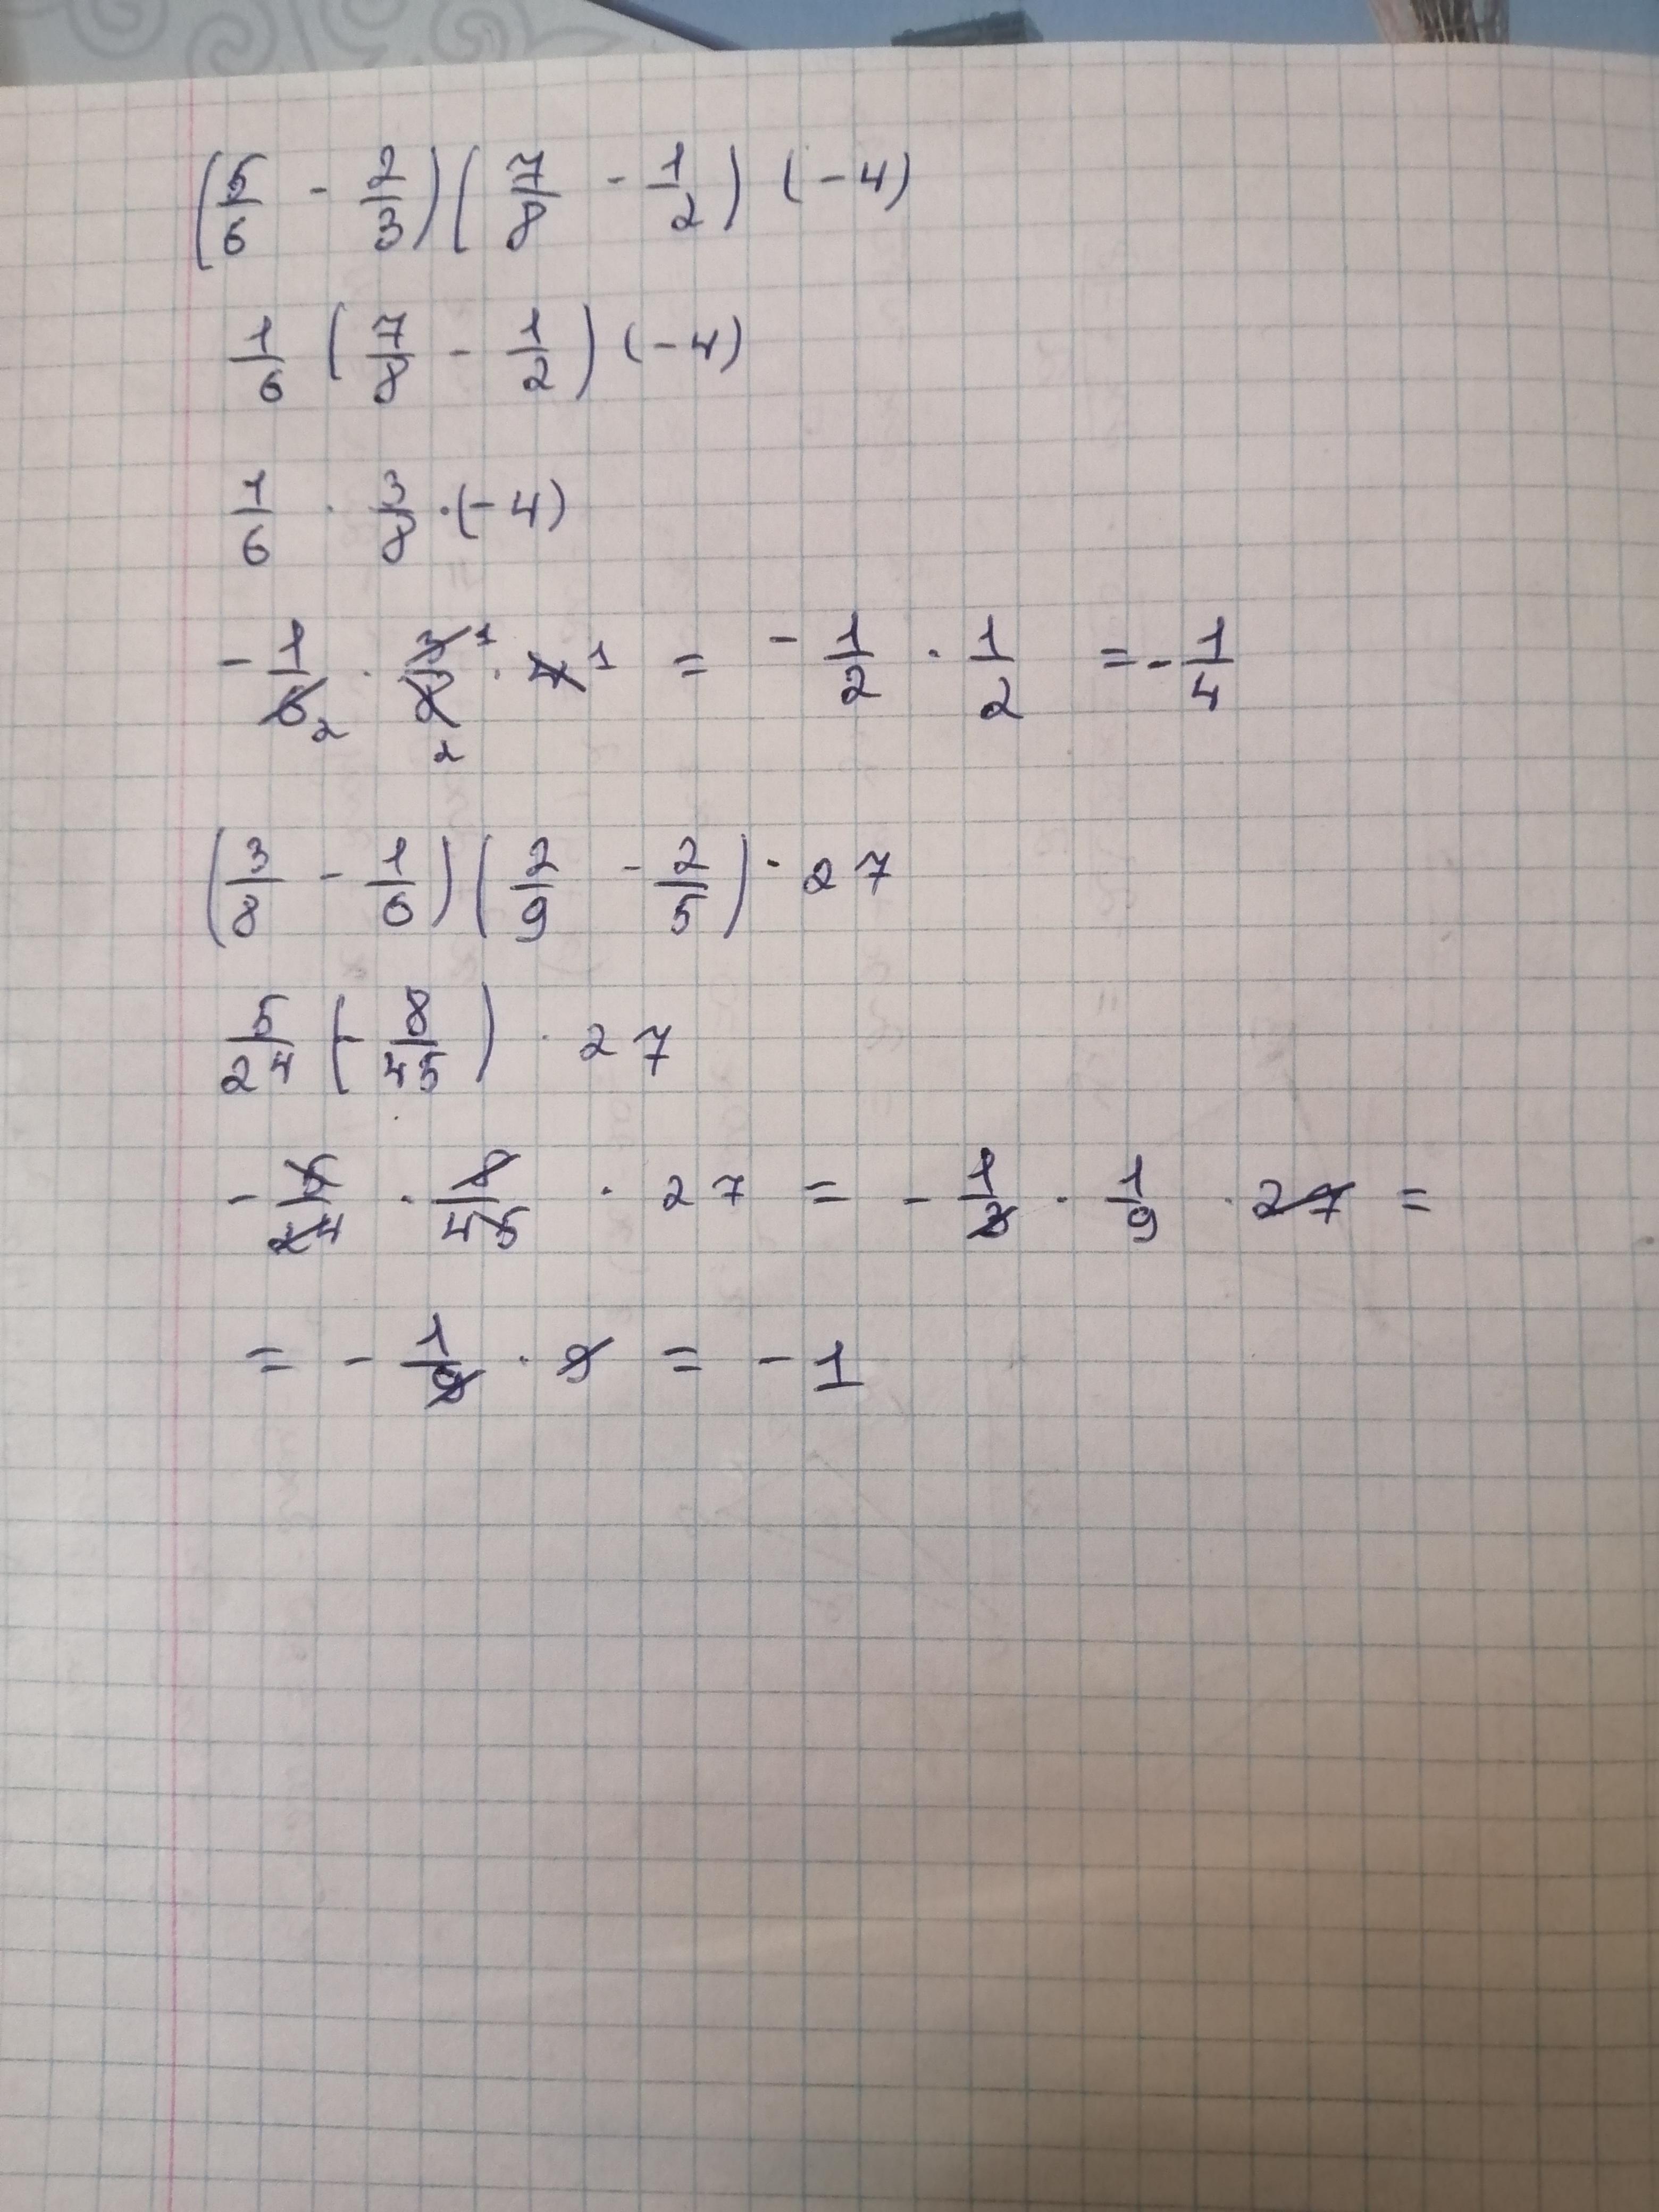 (5/6 - 2/3)(7/8 - 1/2) (-4)
1/6 (7/8 - 1/2) (-4)
1/6 · 3/8 · (-4)
- 1/6 2 · 3/8 1 2 · 4 1 = - 1/2 · 1/2 = - 1/4
(3/8 - 1/6)(2/9 - 2/5) · 27
5/24 (- 8/45) · 27
- 5/24 · 8/45 · 27 = - 1/3 · 1/9 · 27 =
= - 1/9 · 9 = - 1